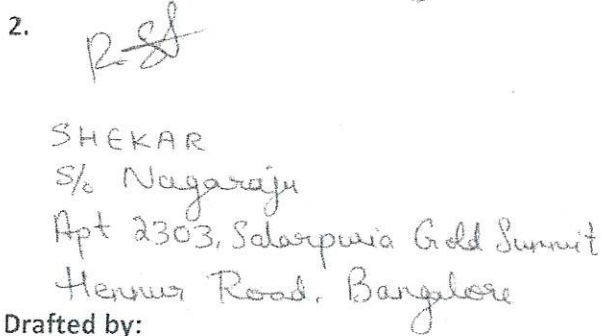 2.
SHEKAR
S/o Nagaraju
Apt 2303, Salarpuria Gold Summit
Hennur Road, Bangalore
Drafted by: